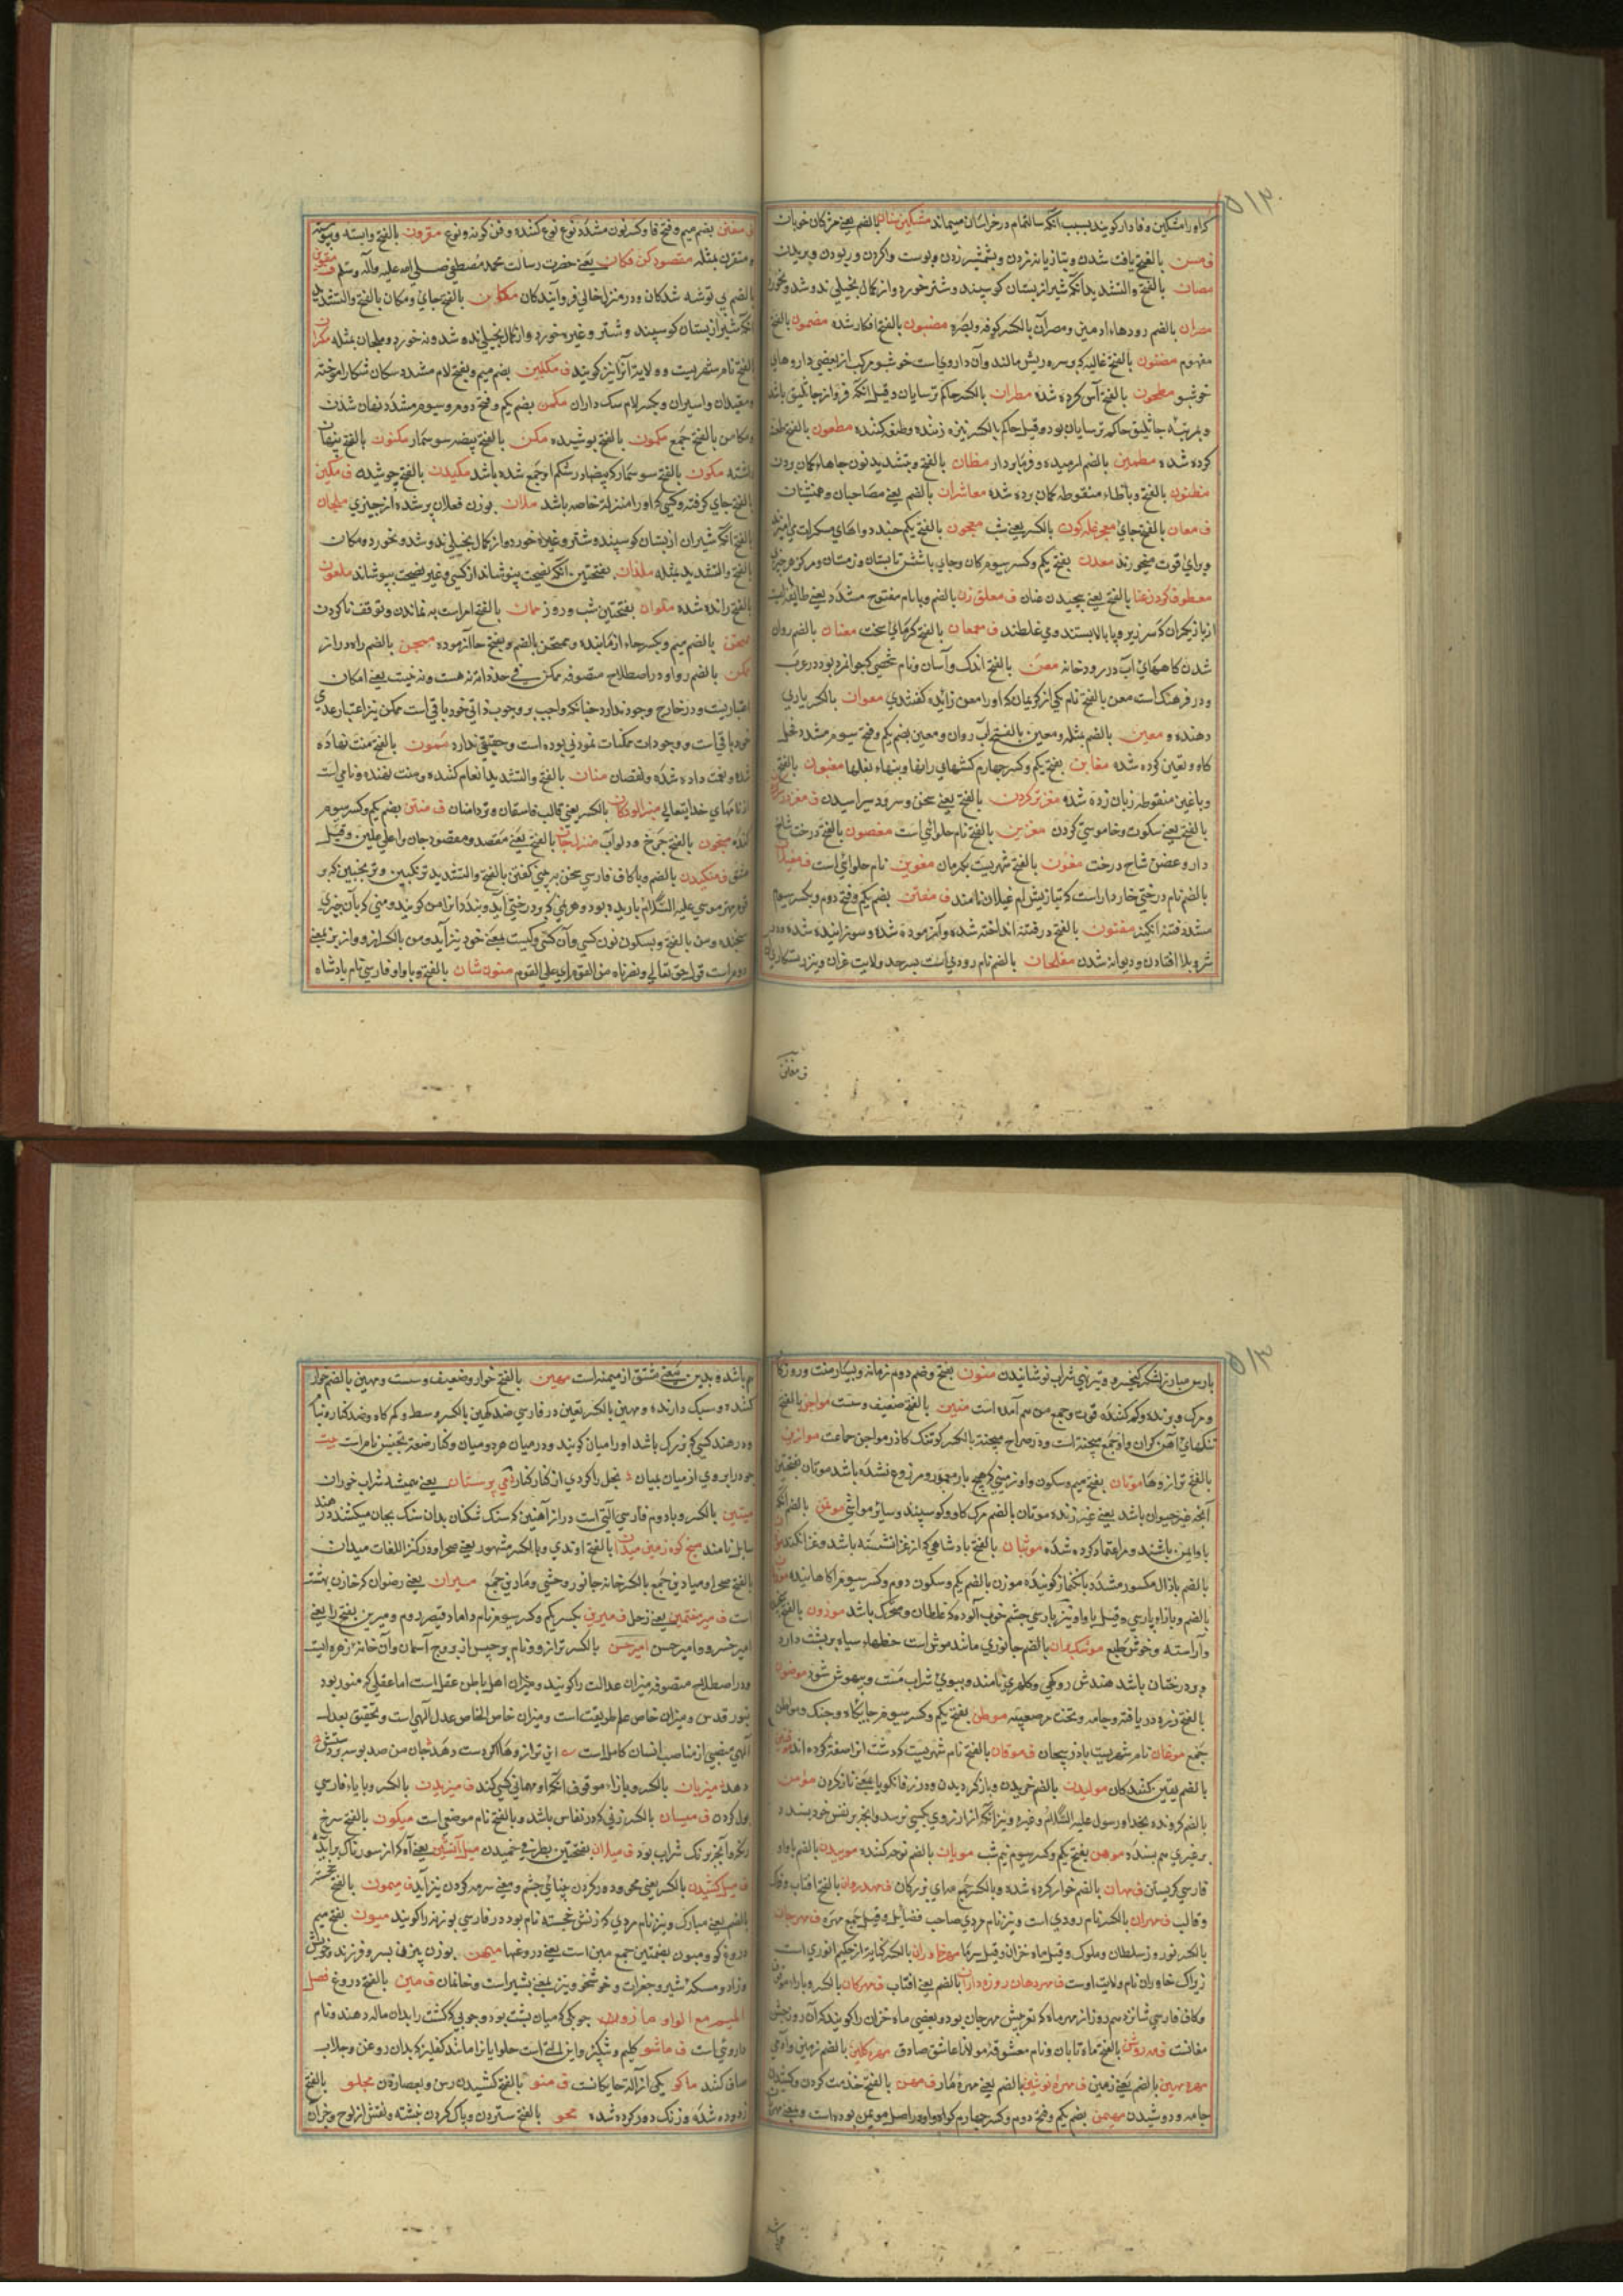 ۵۱۲
کراو را مشکین وفادار کویند بسبب آنکه سالتمام در خراسان میماند مشکین سنان بالضم یعنی مژکان خوبان
ف مسن بالفتح یافت شدن و بتازیانه زدن و بشمشیر زدن و پوست واکردن و ربودن و بریدن
مصان بالفتح والتشدید آنکه شیر از پستان کوسپند و شتر خورد و از کمال بخیلی ندوشد
مصران بالضم رودهاء ادمیین و مصران بالکسر کوفه و بصره مضبون بالفتح افکار شده مضمون بالفتح
مفهوم مضنون بالفتح غالیه که بر سر و ریش مالند و آن داروی است خوشبو مرکب از بعضی داروهای
خوشبو مطحون بالفتح آس کرده شده مطران بالکسر حاکم ترسایان و قیل آنکه فروتر از جاثلیق باشد
و بمرتبه جاثلیق حاکم ترسایان بود و قیل حاکم بالکسر نیزه زننده و طعن کننده مطعون بالفتح طعنه
کرده شده مطمئن بالضم ارمیده و فرمانبردار مظان بالفتح و بتشدید نون جاهاء کمان بردن
مظنون بالفتح و باظاء منقوطه کمان برده شده معاشران بالضم یعنی مصاحبان و همنشینان
ف معان بالفتح جای معجر غله کون بالکسر یعنی شب معجون بالفتح یکم چند دواهای مسکرات
و برای قوت میخورند معدن بفتح یکم و کسر سیوم کان و جای باشش تابستان و زمستان و مرکز هر چیز
معطوف کردن عنان بالفتح یعنی پیچیدن عنان ف معلق زن بالضم و بالام مفتوح مشدد یعنی طایفه ایست
از بازیکران که سر زیر و پا بالا بیستند و می غلطند ف معمعان بالفتح کرمای سخت معنان بالضم روان
شدن کاههای آب در رودخانه معن بالفتح اندک و آسان و نام شخصی که جوانمرد بود در عرب
و در فرهنک است معن بالفتح نام یکی از کریمان که او را معن زائده کفتندی معوان بالکسر یاری
دهنده و معین بالضم مثله و معین بالفتح آب روان و معین بضم یکم و فتح سیوم مشدد
کاه و تعین کرده شده مغابن بفتح یکم و کسر چهارم کشهای رانها و بنهاء بغلها مغبون بالفتح
و باغین منقوطه زیان زده شده مغز تر کردن بالفتح یعنی سخن و سرود سرائیدن
بالفتح یعنی سکوت و خاموشی کردن مغزین بالفتح نام حلوائی است مغصون بالفتح درخت شاخ
دار و غصن شاخ درخت مغون بالفتح شهریست بکرمان مغوین نام حلوائی است ف مغیلان
بالضم نام درختی خاردار است که بتازیش ام غیلان نامند ف مفاتن بضم یکم و فتح دوم و بکسر سیوم
مشدد فتنه انکیز مفتون بالفتح در فتنه انداخته شده و آزموده شده و سوزانیده شده و در
شر و بلا افتادن و دیوانه شدن مفلحان بالضم نام رودی است بسرحد ولایت غزان
ف مغنن
ف مفنن بضم میم و فتح فا و کسر نون مشدد نوع نوع کننده و فن کونه و نوع مقرون بالفتح وابسته و پیوسته
و مقترن مثله مقصود کن فکان یعنی حضرت رسالت محمد مصطفی صلی الله علیه و آله و سلم
بالضم بی توشه شدکان و در منزل خالی فروآیندکان مکان بالفتح جای و مکان بالفتح والتشدید
آنکه شیر از پستان کوسپند و شتر و غیره خورد و از کمال بخیلی نده شد و نه خورد و ملجان مثله مکران
بالفتح نام شهریست و ولایة آنرا نیز کویند ف مکلبین بضم میم و بفتح لام مشدد سکان شکار اموخته
و مقیدان و اسیران و بکسر لام سک داران مکمن بضم یکم و فتح دوم و سیوم مشدد نهان شدن
مکامن بالفتح جمع مکمون بالفتح پوشیده مکن بالفتح بیضه سوسمار مکنون بالفتح پنهان
داشته مکون بالفتح سوسمار که بیضها در شکم او جمع شده باشد مکیدن بالفتح چوشیده ف مکین
بالفتح جای کرفته و کسی که او را منزلة خاصه باشد ملآن بوزن فعلان پر شده از چیزی ملجان
بالفتح آنکه شیر از پستان کوسپند و شتر و غیره خورد و از کمال بخیلی ندوشد و نخورد و مکان
بالفتح والتشدید مثله ملغان بفتحتین آنکه نصیحت بنوشاند از کسی و غیر نصیحت بپوشاند ملعون
بالفتح رانده شده ملوان بفتحتین شب و روز ممان بالفتح امر است به نماندن و توقف ناکردن
ممتحن بالضم میم و بکسر حاء ازماینده و ممتحن بالضم و بفتح حا آزموده ممجن بالضم راه دراز
ممکن بالضم روا و در اصطلاح متصوفه ممکن فی حد ذاته نه هست و نه نیست یعنی امکان
اعتباریست و در خارج وجود ندارد چنانکه واجب بر وجوب ذاتی خود باقی است ممکن نیز اعتبار عدمی
خود باقی است و وجودات ممکنات نمودنی بوده است و حقیقی ندارد ممنون بالفتح منت نهاده
شده و نعمت داده شده و نقصان منان بالفتح والتشدید انعام کننده و منت نهنده و نامی است
از نامهای خدایتعالی منبر الودکان بالکسر یعنی قالب فاسقان و تردامنان ف منتن بضم یکم و کسر سیوم
کنده منجنون بالفتح چرخ و دولاب منزل جان بالفتح یعنی مقصد و مقصود جان را علی علیین و قیل
عشق ف منکیدن بالضم و با کاف فارسی سخن بر بینی کفتن بالفتح والتشدید ترنکبین و ترنجبین که بر
قوم مهتر موسی علیه السلام باریده بود و هر چه که بر درختی آید و ببندد آنرا من کویند و منی که بآن چیزی
سنجند و من بالفتح و بسکون نون کسی و آن کسی و کیست بمعنی خود نیز آید و من بالکسر از و از بربمعنی
دوم است قوله حق تعالی و نصرناه من القوم ای علی القوم منون شان بالفتح و با واو فارسی نام پادشاه
۵۱۳
پارس مبارز لشکر کیخسرو و ترتیب شراب نوشانیدن منون بفتح و ضم دوم زمانه و بسیار منت و روزکار
و مرک و برنده و کم کننده قوت و جمع من هم آمده است منین بالفتح ضعیف و سست مواجن بالفتح
تنکهای آهن کران واو جمع میجنة است و در صراح میجنة بالکسر کوتنک کاذر مواجن جماعت موازین
بالفتح ترازوها موتان بفتح میم و سکون واو زمینی که هیچ بار معمور و مزروع نشده باشد موتان بفتحتین
آنچه غیر حیوان باشد یعنی غیر زنده موتان بالضم مرک کاو و کوسپند و سایر مواشی موتمن بالضم آنکه
باو ایمن باشند و بر اعتماد کرده شده موثبان بالفتح پادشاهی که از غزا نشسته باشد و غزا نکند
بالضم با ذال مکسور مشدد بانک نماز کوینده موزن بالضم یکم و سکون دوم و کسر سیوم آکاهاننده
بالضم و با زاء پارسی و قیل با واو نیز پارسی چشم خوب آلوده که غلطان و متحرک باشد موزون بالفتح سنجیده
و آراسته و خوش طبع موشکبهان بالضم جانوری مانند موش است خطهاء سیاه بر پشت دارد
و بر درختان باشد هندش روکهی و کلهری نامند و ببوی شراب مست و بیهوش شود موضون
بالفتح زره در بافته و جامه و تخت مرصع پیشه موطن بفتح یکم و کسر سیوم جایکاه و جنک و مواطن
جمع موغان نام شهریست باذربیجان ف موقان بالفتح نام شهریست که دشت آنرا صفت کرده اند
بالضم یقین کنندکان مولیدن بالضم خزیدن و باز کردیدن و در زفانکویا بمعنی ناز کردن مؤمن
بالضم کرونده بخدا و رسول علیه السلام و غیره و نیز آنکه از آرزوی بکسی نرسد و آنچه بر نفس خود پسندد
بر غیری هم پسندد موهن بفتح یکم و کسر سیوم نیم شب مویان بالضم نوحه کننده موییدن بالضم با واو
فارسی کریستن ف مهان بالضم خوار کرده شده و بالکسر جمع مه ای بزرکان ف مهدروان بالفتح افتاب و فلک
و قالب ف مهران بالکسر نام رودی است و نیز نام مردی صاحب فضایل و قیل جمع مهره ف مهرجان
بالکسر نوروز سلطان و ملوک و قیل ماه خزان و قیل سرما مهر خاوران بالکسر کنایه از حکیم انوری است
زیراک خاوران نام ولایت اوست ف مهر دهان روزه داران بالضم یعنی افتاب ف مهرکان بالکسر و بارا موقوف
و کاف فارسی شانزدهم روز از مهر ماه که نوجشن مهرجان بود و بعضی ماه خزان را کویند که آن روز جشن
مغانست ف مه روشن بالفتح ماه تابان و نام معشوقه مولانا عاشق صادق مهره کلین بالضم زمین و آدمی
مهره مهین بالضم یعنی زمین ف مهره نوشین بالضم یعنی مهره مار ف مهن بالفتح خدمت کردن و کشیدن
جامه و دوشیدن مهیمن بضم یکم و فتح دوم و کسر چهارم کواه و او در اصل موءیمن بوده است و بمعنی
هم باشد و بدین معنی مشتق از هیمنه است مهین بالفتح خوار و ضعیف و سست و مهین بالضم خوار
کننده و سبک دارنده و مهین بالکسر تعین در فارسی ضد کهین بالکسر وسط و کمرکاه و ضد کناره
و در هند کسی که بزرک باشد او را میان کویند و در میان هر دو میان و کنار صنعت تجنیس تام است
ف می پرستان یعنی همیشه شراب خوران
میتین بالکسر و بادوم فارسی آلتی است دراز آهنین که سنک شکنان بدان سنک بجان میکشند در هند
سابل نامند میخ کوه زمین میدان بالفتح او تدی و بالکسر مشهور یعنی صحرا و در کنز اللغات میدان
بالفتح صحرا و میادین جمع بالکسر خانه جانور وحشی و مآرین جمع میران یعنی رضوان که خازن بهشت
است ف میر هفتمین یعنی زحل ف میرین بکسر یکم و کسر سیوم نام داماد قیصر دوم و میرین بفتح را یعنی
امیر خسرو و امیر حسن میزان بالکسر ترازو و نام برجیس از بروج آسمان و آن خانه زهره است
و در اصطلاح متصوفه میزان عدالت را کویند و میزان اهل باطن عقل است اما عقلی که منور بود
بنور قدس و میزان خاص علم طریقت است و میزان خاص الخاص عدل الهی است و تحقیق بعدل
الهی منصبی از مناصب انسان کامل است
دهد میزبان بالکسر و بازاء موقوف آنکه او مهمانی کسی کند ف میزیدن بالکسر و بایاء فارسی
بول کردن ف میسان بالکسر زنی که در نفاس باشد و بالفتح نام موضعی است میکون بالفتح سرخ
رنک و آنچه برنک شراب بود ف میلان بفتحتین بطرفی خمیدن میل آتشین یعنی آه که از سوزناک برآید
ف میل کشیدن بالکسر یعنی محو و دور کردن بینائی چشم و بمعنی سرمه کردن نیز آید ف میمون بالفتح خجسته
بالضم یعنی مبارک و نیز نام مردی که زنش خجسته نام بود در فارسی بوزنه را کویند میون بفتح میم
دروغ کو و میون بضمتین جمع مین است یعنی دروغها میهن بوزن بیزن پسر و فرزند و خویش
و زاد و مسکن شیر و حجرات و خوشخو و نیز بمعنی بشیر است و خانمان ف مین بالفتح دروغ فصل
المیم مع الواو مازو چوبکی که میان پشت بود و چوبی که کشت را بدان ماله دهند و نام
داروئی است ف ماشو کلیم و شپکیر و این آلتی است حلوایانرا مانند کفلیز که بدان روغن و جلاب
صاف کنند ماکو یکی از آلة جایکانست ف متو بالفتح کشیدن رس و بعصا زدن مجلو بالفتح
زدوده شده و زنک دور کرده شده محو بالفتح ستردن و پاک کردن نبشته و نقش از لوح و جز آن